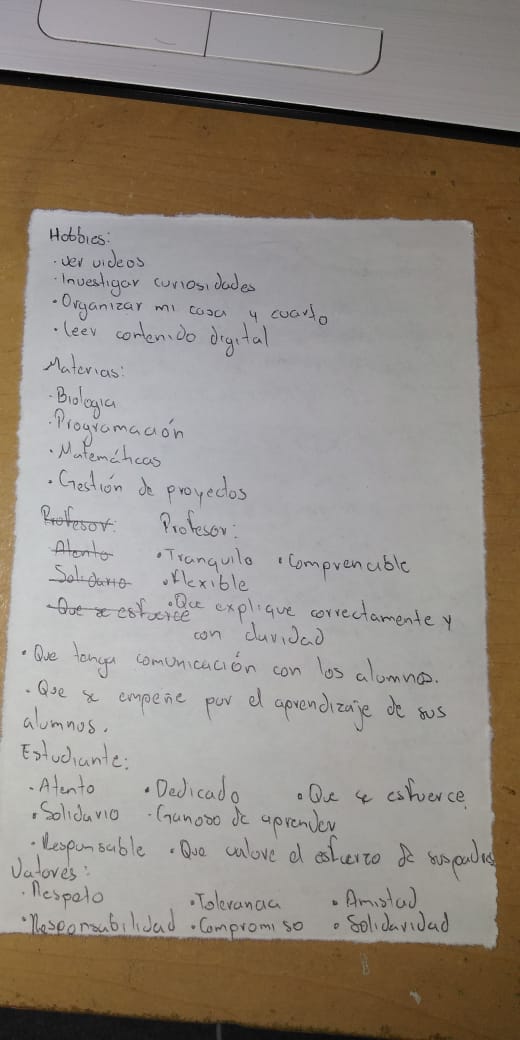 Hobbies:
· ver videos
· Investigar curiosidades
· Organizar mi casa y cuarto
· leer contenido digital
Materias:
· Biologia
· Programación
· Matemáticas
· Gestión de proyectos
Profesor: Profesor:
Atento · Tranquilo · Comprencible
Solidario · flexible
Que se esfuerce · Que explique correctamente y
con claridad
· Que tenga comunicación con los alumnos.
· Que se empeñe por el aprendizaje de sus
alumnos.
Estudiante:
· Atento · Dedicado · Que se esfuerce
· Solidario · Ganoso de aprender
· Responsable · Que valore el esfuerzo de sus padres
Valores:
· Respeto · Tolerancia · Amistad
· Responsabilidad · Compromiso · Solidaridad